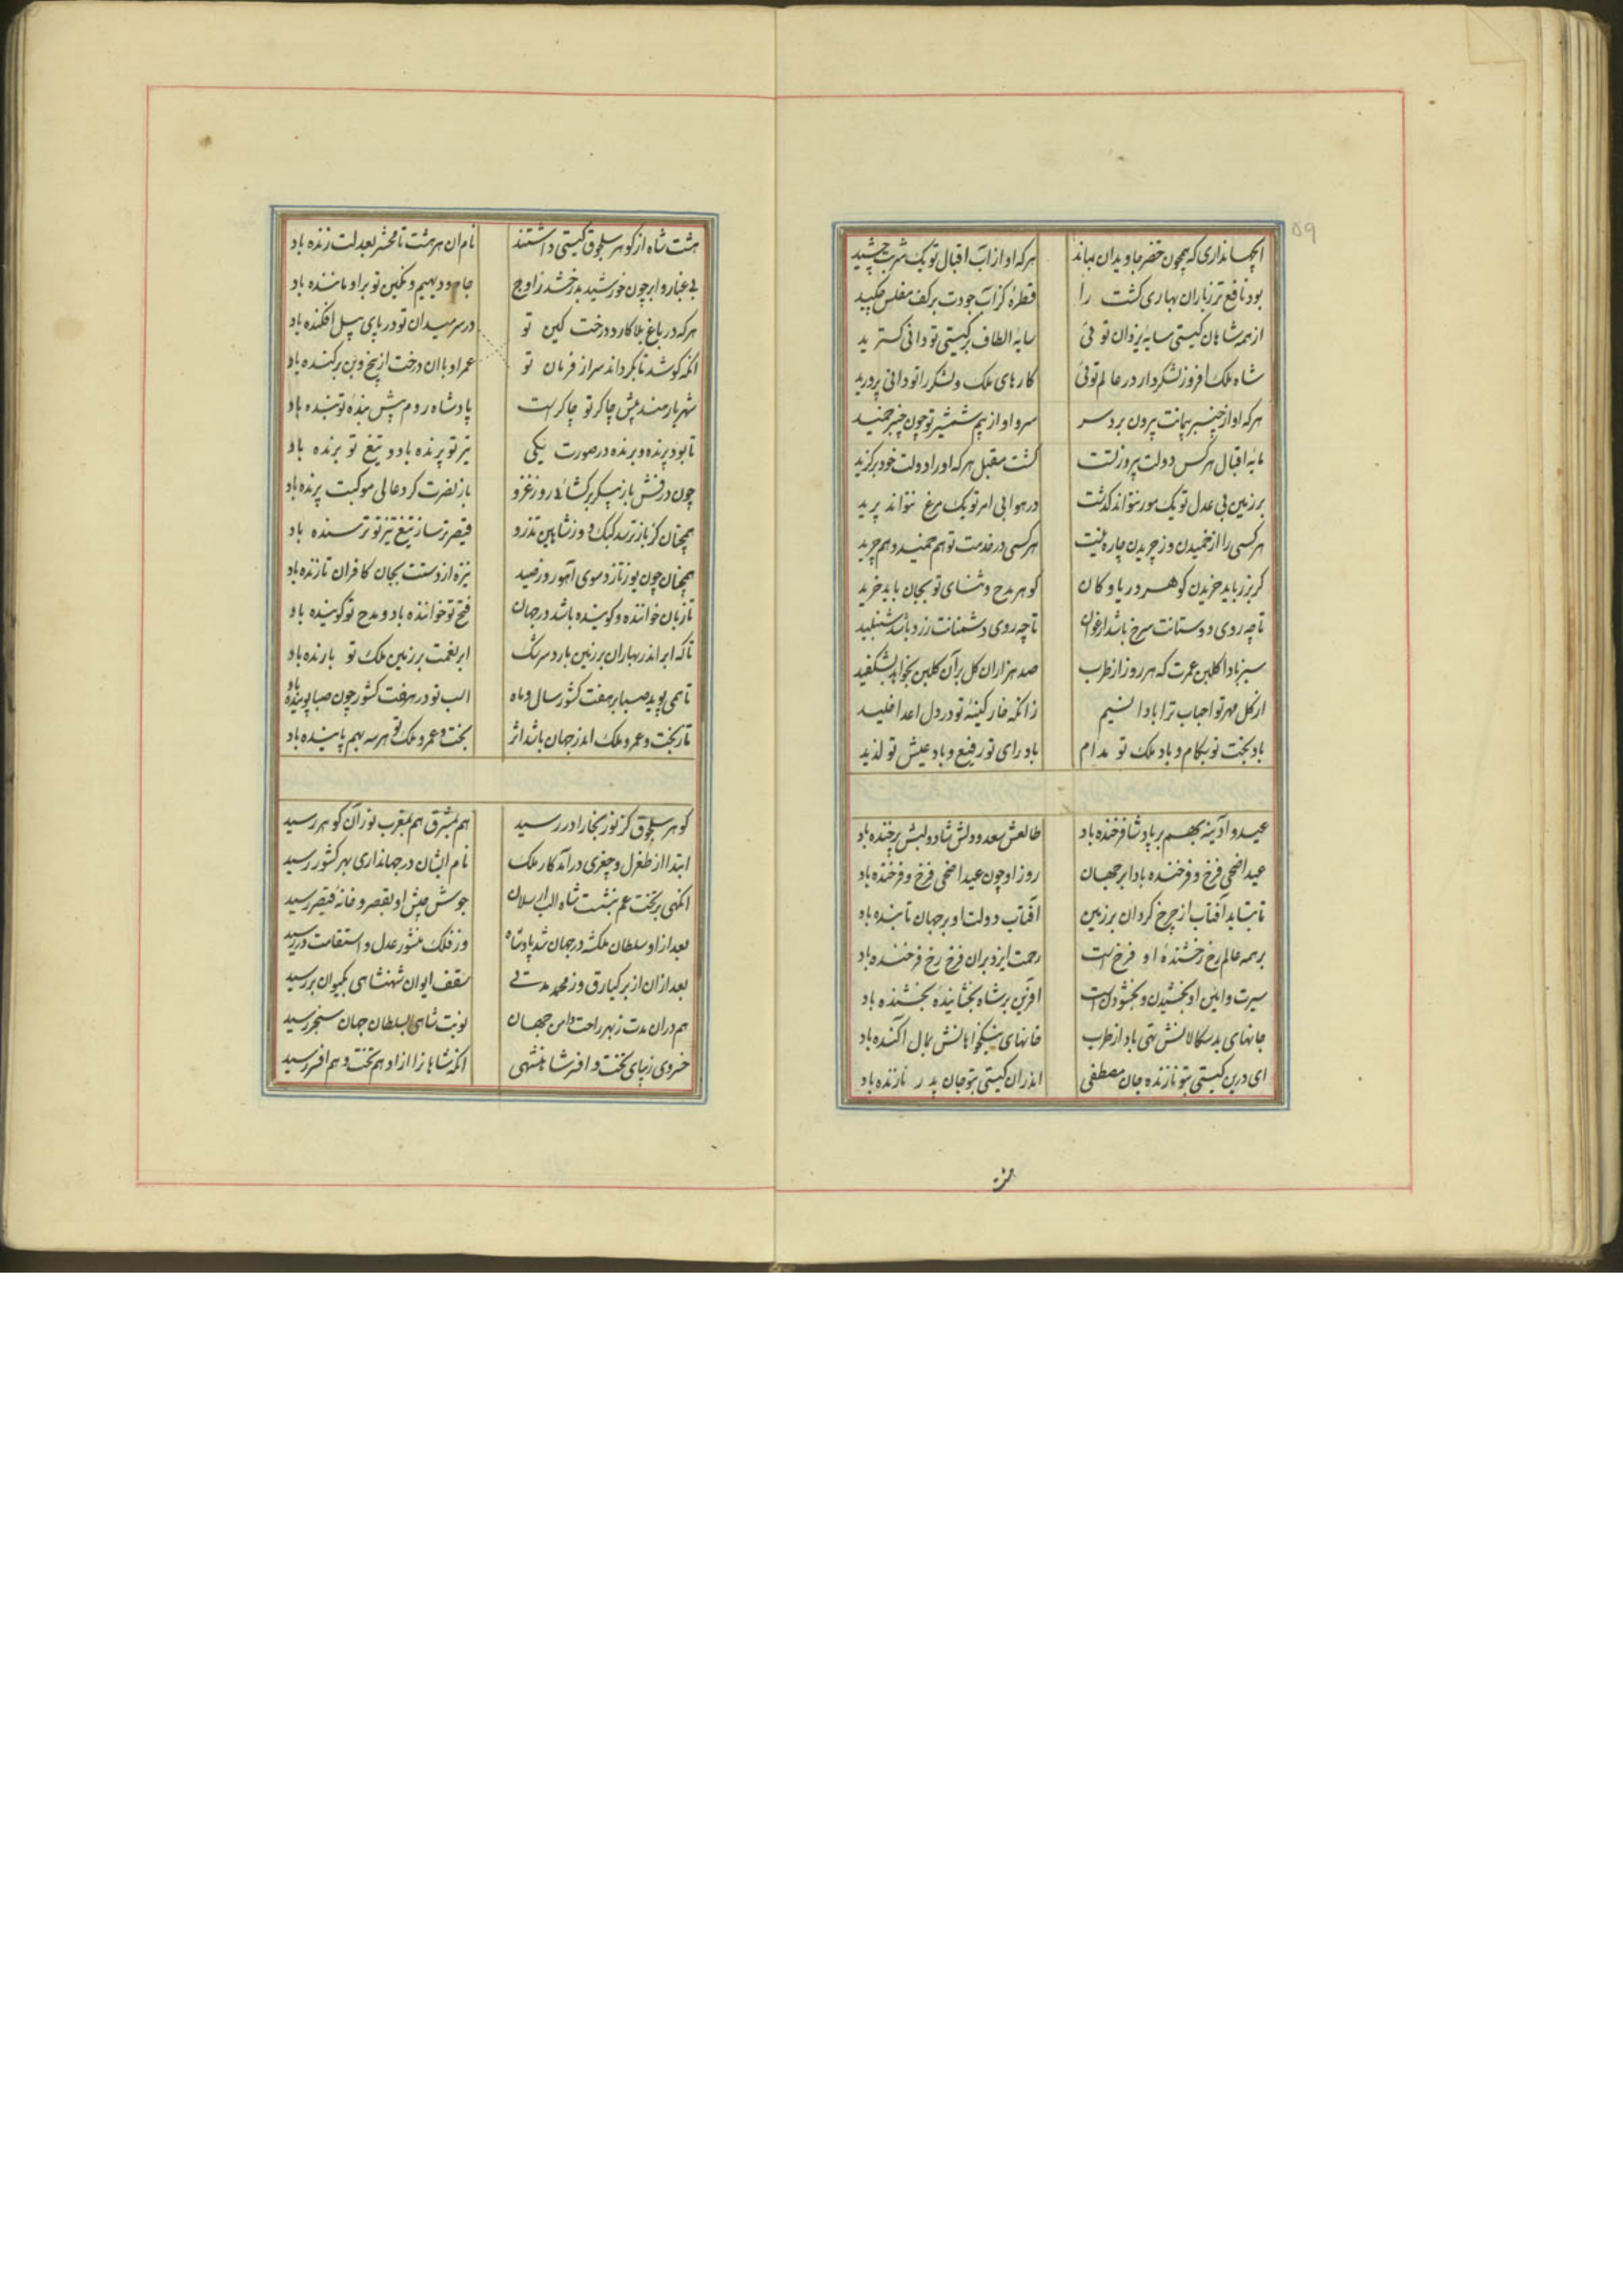 ۵۹
ایجهانداری که همچون خضر جاویدان بماند هرکه او از آب اقبال تو یک شربت چشید
بود نافع‌تر ز باران بهاری کشت را قطرهٔ کز آب جودت بر کف مفلس چکید
از همه شاهان کیتی سایه یزدان توئی سایهٔ الطاف بر کیتی تو دانی کسترید
شاه ملک افروز لشکردار در عالم توئی کارهای ملک و لشکر را تو دانی پرورید
هرکه او از چنبر پیمانت بیرون برد سر سرو او از بیم شمشیر تو چون چنبر خمید
مایه اقبال هرکس دولت پیروز تست کشت مقبل هرکه او را دولت خود برکزید
بر زمین بی عدل تو یک مور نتواند کذشت در هوا بی امر تو یک مرغ نتواند پرید
هرکسی را از خمیدن وز چریدن چاره نیست هرکسی در خدمت تو هم خمید و هم چرید
کر بزر باید خریدن کوهر دریا و کان کوهر مدح و ثنای تو بجان باید خرید
تا چه روی دوستانت سرخ باشد ارغوان تا چه روی دشمنانت زرد باشد شنبلید
سبز بادا کلبن عمرت که هر روز از طرب صد هزاران کل بر آن کلبن بخواهد بشکفید
از کل مهر تو احباب ترا بادا نسیم زانکه خار کینهٔ تو در دل اعدا خلید
باد بخت تو بکام و باد ملک تو مدام باد رای تو رفیع و باد عیش تو لذید
عید و آدینه بهم بر پادشا فرخنده باد طالعش سعد و دلش شاد و لبش پرخنده باد
عید اضحی فرخ و فرخنده باد ابر جهان روز او چون عید اضحی فرخ و فرخنده باد
تا بتابد آفتاب از چرخ کردان بر زمین آفتاب دولت او بر جهان تابنده باد
بر همه عالم رخ رخشندهٔ او فرخ است رحمت ایزد بران فرخ رخ فرخنده باد
سیرت و آئین او بخشیدن و بخشودن است افرین بر شاه بخشایندهٔ بخشنده باد
جانهای بدسکالانش تهی باد از طرب خانهای نیکخواهانش بمال آکنده باد
ای درین کیتی بتو نازنده جان مصطفی اندران کیتی بتو جان پدر نازنده باد
هشت
هشت شاه از کوهر سلجوق کیتی داشتند نام ان هر هشت تا محشر بعدلت زنده باد
بی غبار و ابر چون خورشید بدرخشد ز اوج جاه و دیهیم و نکین تو بر او ماننده باد
هرکه در باغ بلا کارد درخت کین تو در سر میدان تو در پای پیل افکنده باد
انکه کوشد تا بکرداند سر از فرمان تو عمر او با ان درخت از بیخ و بن برکنده باد
شهریار هند پیش چاکر تو چاکر است پادشاه روم پیش بندهٔ تو بنده باد
تا بود پرنده و برنده در صورت یکی تیر تو پرنده باد و تیغ تو برنده باد
چون درفش باز پیکر برکشائی روز غزو باز نصرت کرد عالی موکبت پرنده باد
همچنان کز باز ترسد کبک و ز شاهین تذرو قیصر ترسا ز تیغ تیز تو ترسنده باد
همچنان چون یوز تازد سوی آهو روز صید نیزه از دستت بجان کافران تازنده باد
تا زبان خواننده و کوینده باشد در جهان فتح تو خواننده باد و مدح تو کوینده باد
تا که ابر اندر بهاران بر زمین بارد سرشک ابر نعمت بر زمین ملک تو بارنده باد
تا همی پوید صبا بر هفت کشور سال و ماه اسب تو در هفت کشور چون صبا پوینده باد
تا ز بخت و عمر و ملک اندر جهان باشد اثر بخت و عمر و ملک تو هر سه بهم پاینده باد
کوهر سلجوق کز نور بخارا در رسید هم بمشرق هم بمغرب نور آن کوهر رسید
ابتدا از طغرل و چغری درآمد کار ملک نام ایشان در جهانداری بهر کشور رسید
انکهی بر تخت عم بنشست شاه الب ارسلان جوش جیش او بقصر و خانهٔ قیصر رسید
بعد از او سلطان ملکشه در جهان شد پادشاه وز فلک منشور عدل و استقامت در رسید
بعد ازان از برکیارق وز محمد مدتی سقف ایوان شهنشاهی بکیوان بر رسید
هم دران مدت ز بهر راحت و امن جهان نوبت شاهی بسلطان جهان سنجر رسید
خسروی زیبای تخت و افسر شاهنشهی انکه شاهانرا از او هم تخت و هم افسر رسید